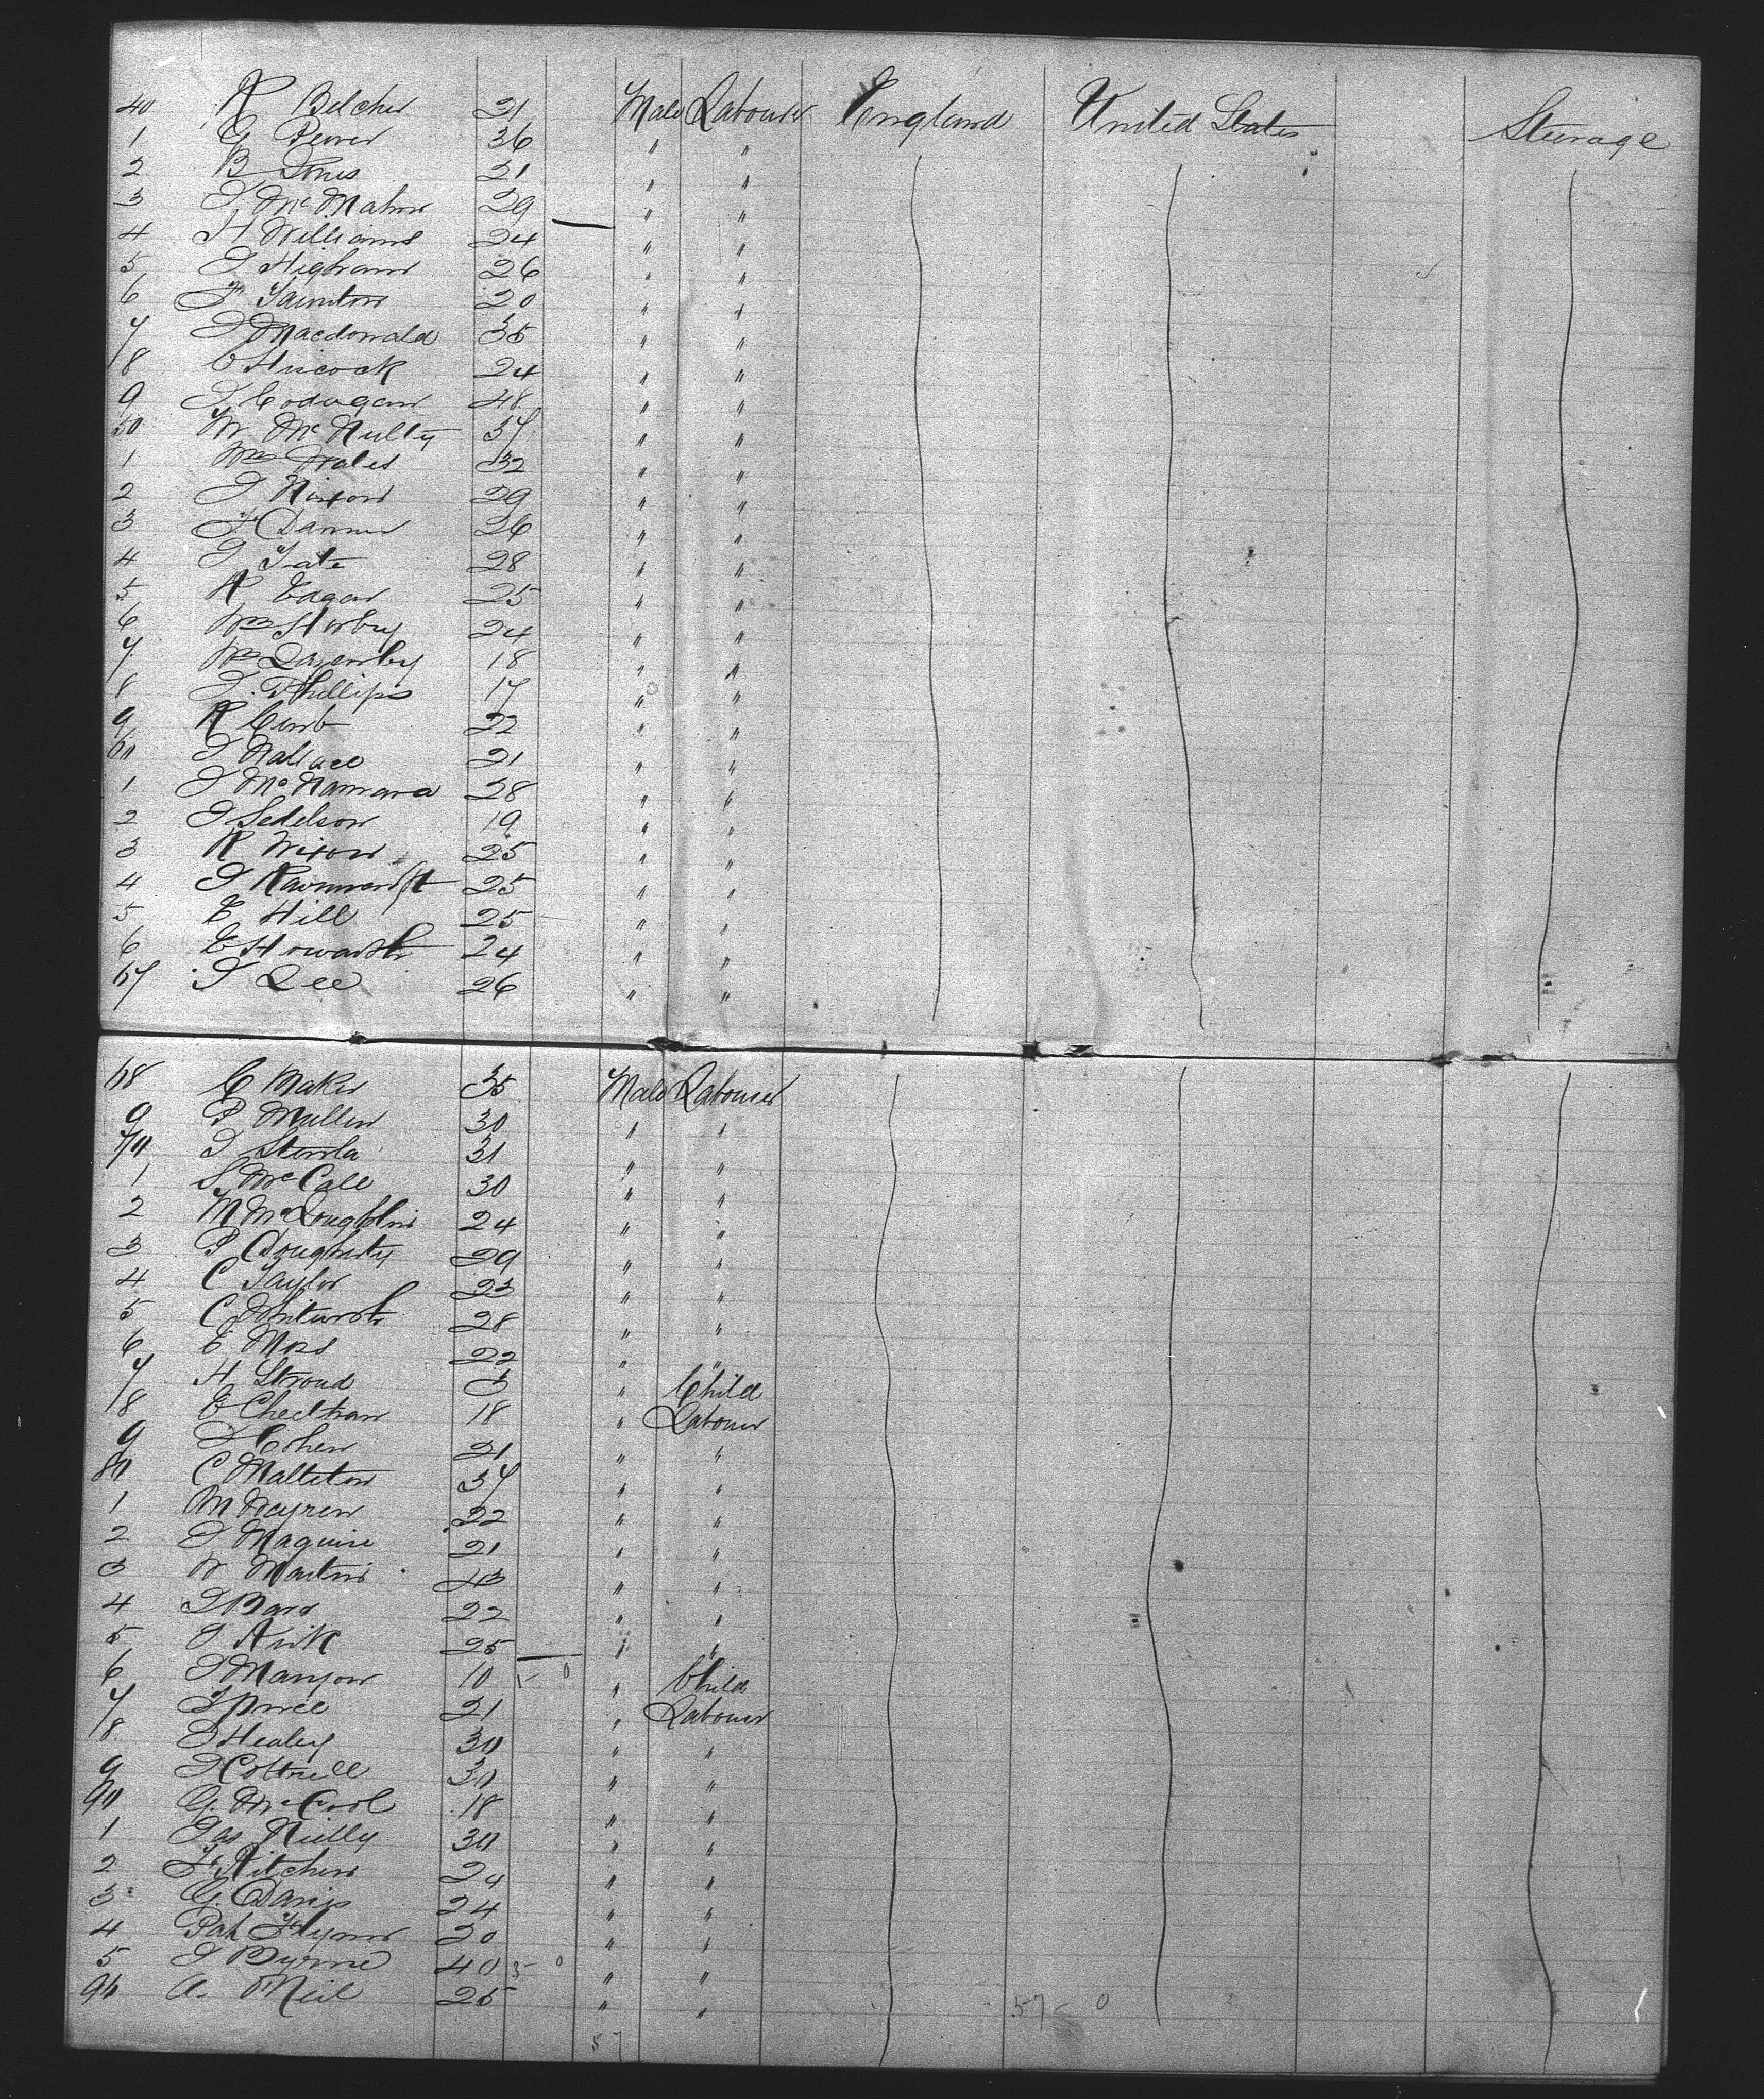 40 R Belcher 21 Male Labourer England United States Steerage
1 G Pever 36 " "
2 B Jones 21 " "
3 J McMahon 29 " "
4 H Williams 24 " "
5 J Higham 26 " "
6 F Tainton 20 " "
7 J Macdonald 35 " "
8 C Hiscock 24 " "
9 J Codogan 48 " "
50 W McNulty 37 " "
1 Wm Wales 32 " "
2 J Nixon 29 " "
3 F Danner 26 " "
4 J Tate 28 " "
5 R Edgar 25 " "
6 Wm 24 " "
7 Wm Lazenby 18 " "
8 J. Phillips 17 " "
9 R 22 " "
60 J Wallace 21 " "
1 J McNamara 28 " "
2 J 19 " "
3 R Nixon 25 " "
4 J 25 " "
5 E Hill 25 " "
6 E Howarth 24 " "
67 J Lee 26 " "
68 C Maker 35 Male Labourer
9 P Mullen 30 " "
70 J 31 " "
1 S McCall 30 " "
2 M McLoughlin 24 " "
3 P Dougherty 29 " "
4 C Taylor 23 " "
5 C Whitworth 28 " "
6 E Moss 22 " "
7 H Stroud 3 " Child
8 E Cheetham 18 " Labourer
9 J Cohen 21 " "
80 C 37 " "
1 M 22 " "
2 J Maguire 21 " "
3 W Martin 43 " "
4 J Barr 22 " "
5 J Kirk 25 " "
6 J Manyon 10 1 - 0 " Child
7 J Price 21 " Labourer
8 J Healey 30 " "
9 J Cottrell 30 " "
90 G. McCool 18 " "
1 Jas Reilly 30 " "
2 F Kitchen 24 " "
3 G Davis 24 " "
4 Pat Flynn 20 " "
5 J Byrne 40 " "
96 A. Neil 25 " "
57 - 0
57